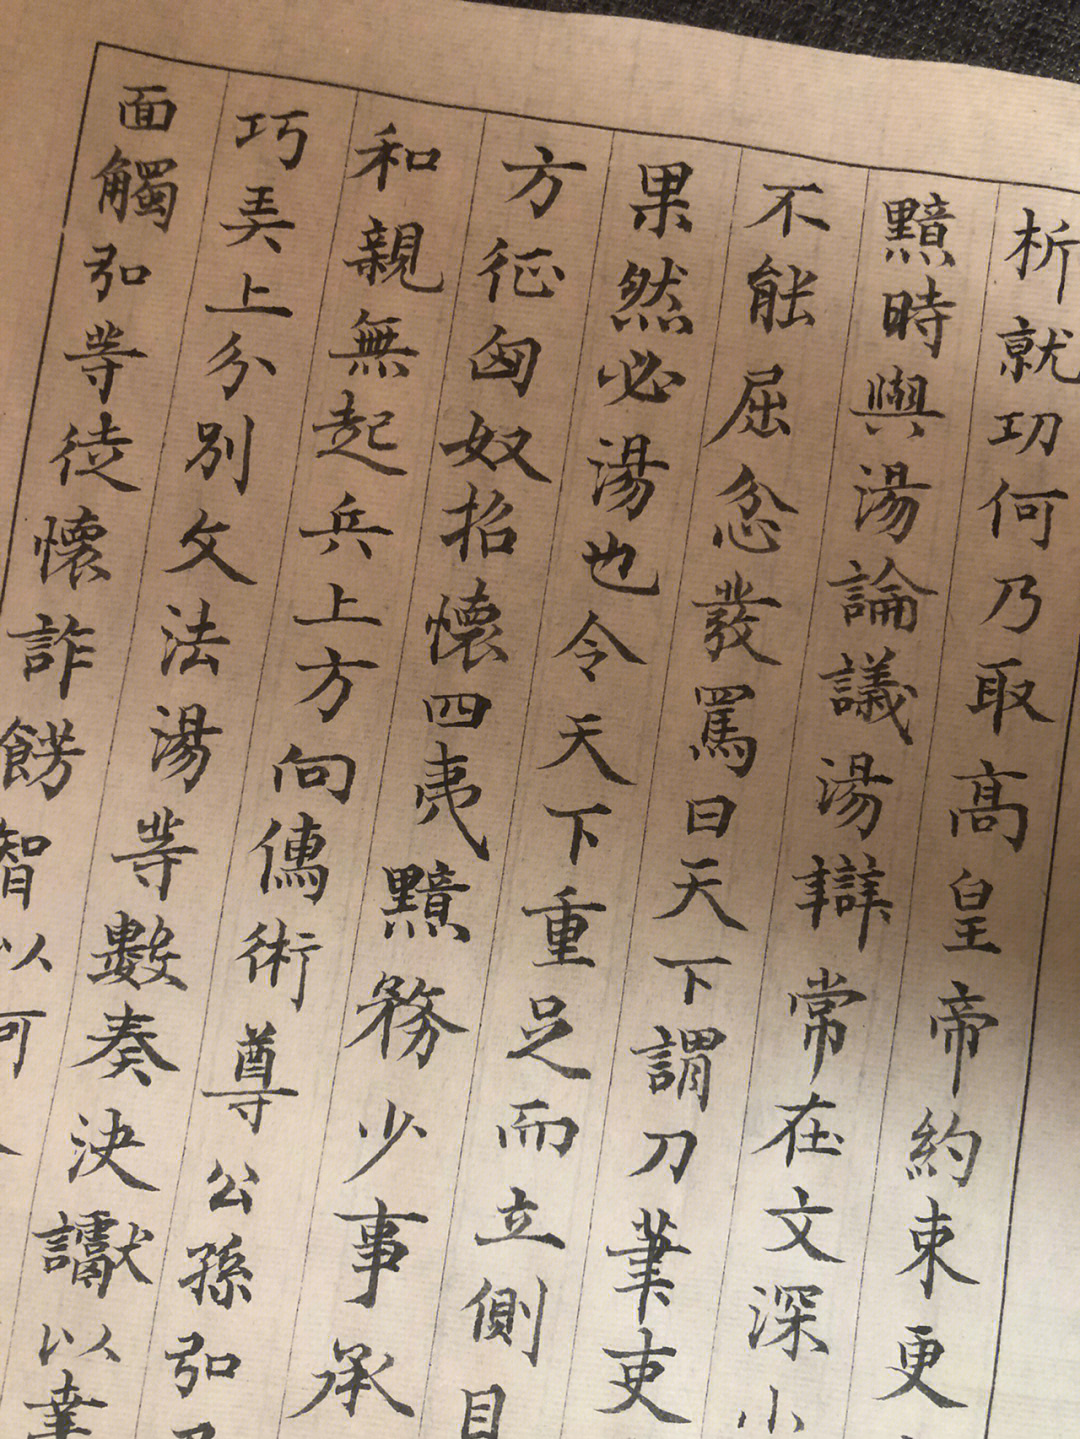 析就功何乃取高皇帝約束更
黯時與湯論議湯辯常在文深小
不能屈忿發罵曰天下謂刀筆吏
果然必湯也令天下重足而立側目
方征匈奴招懷四夷黯務少事承
和親無起兵上方向儒術尊公孫弘
巧弄上分別文法湯等數奏決讞以幸
面觸弘等徒懷詐飾智以阿